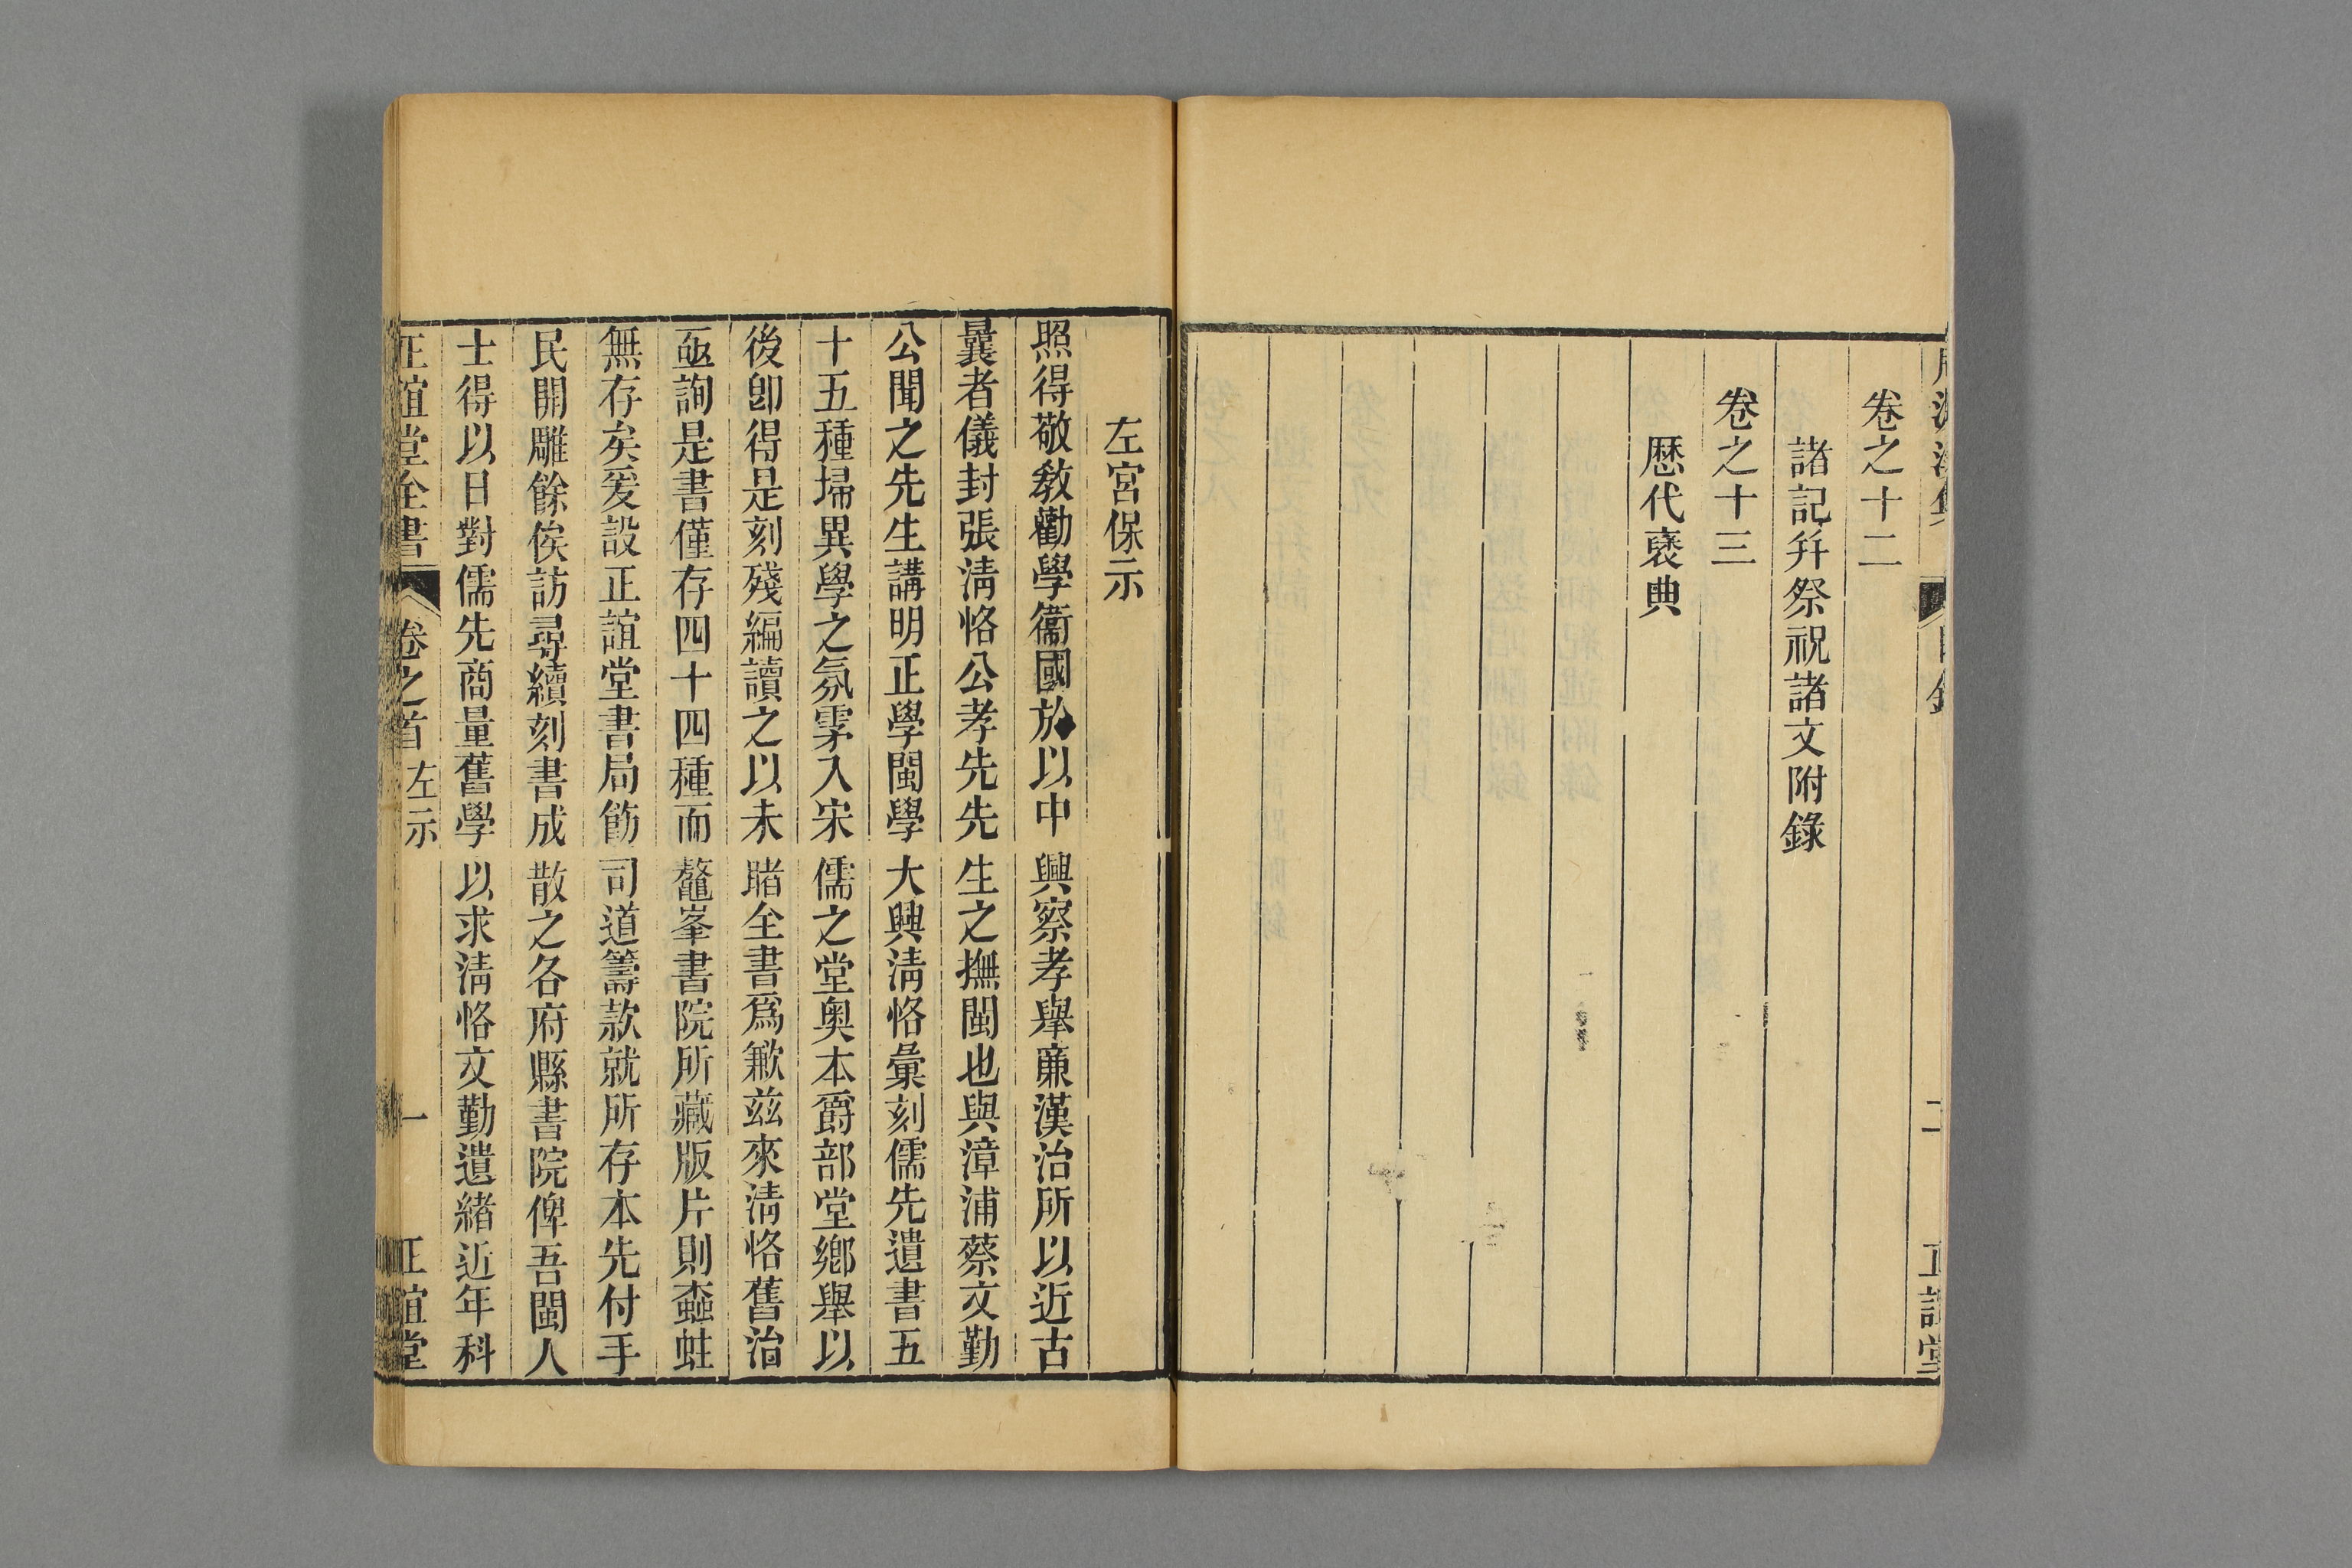 卷之十二
諸記并祭祝諸文附錄
卷之十三
歷代褒典
二
正誼堂
左宮保示
照得敬教勸學衞國於以中興察孝舉廉漢治所以近古
曩者儀封張淸恪公孝先先生之撫閩也與漳浦蔡文勤
公聞之先生講明正學閩學大興淸恪彙刻儒先遺書五
十五種埽異學之氛雺入宋儒之堂奧本爵部堂鄉舉以
後卽得是刻殘編讀之以未睹全書爲歉兹來淸恪舊治
亟詢是書僅存四十四種而鼇峯書院所藏版片則螙蛀
無存矣爰設正誼堂書局飭司道籌款就所存本先付手
民開雕餘俟訪尋續刻書成散之各府縣書院俾吾閩人
士得以日對儒先商量舊學以求淸恪文勤遺緒近年科
正誼堂全書
卷之首
左示
一
正誼堂